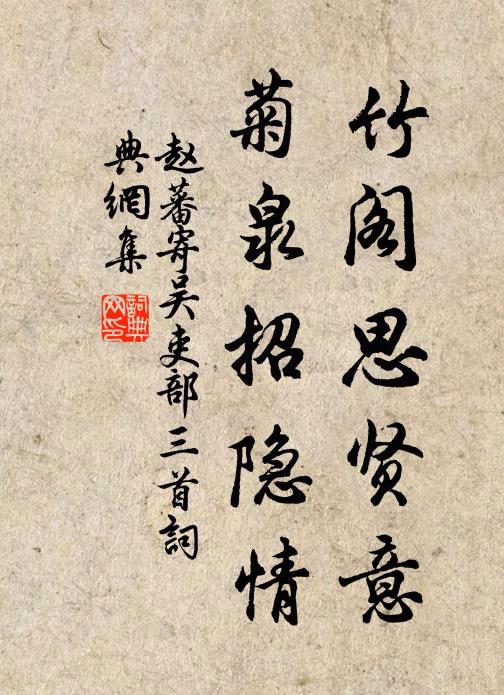 竹阁思贤意
菊泉招隐情
赵蕃寄吴吏部三首詞
典網集
詞典网印